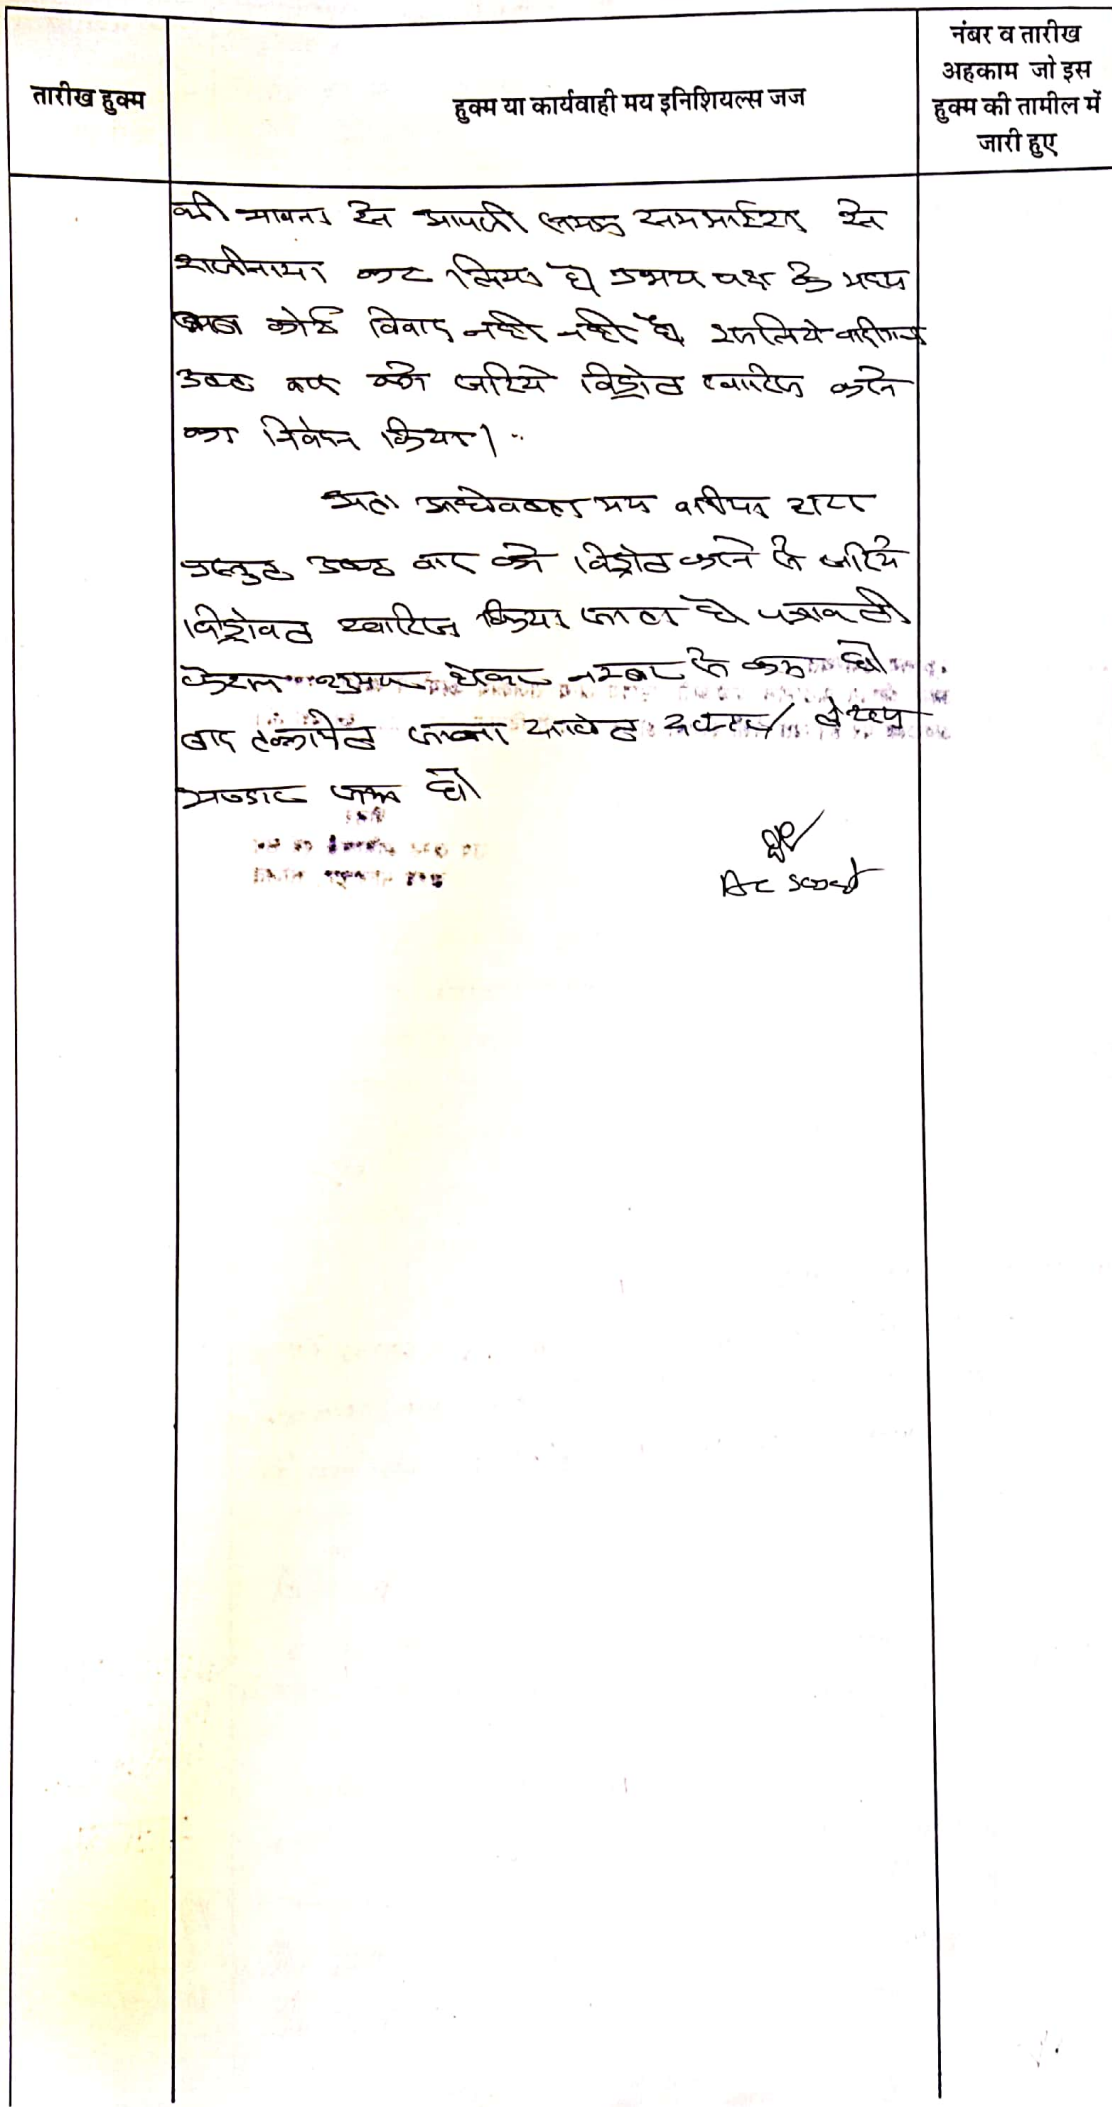 तारीख हुक्म
हुक्म या कार्यवाही मय इनिशियल्स जज
नंबर व तारीख
अहकाम जो इस
हुक्म की तामील में
जारी हुए
की भावना से आपसी समझ समझाईश से
राजीनामा कर लिया है उभय पक्ष के मध्य
अब कोई विवाद नही नही है इसलिये वादीगण
उक्त वाद को जरिये विड्रोल खारिज करने
का निवेदन किया।
अतः अधिवक्ता मय वादीया द्वारा
प्रस्तुत उक्त वाद को विड्रोल करने के जरिये
विड्रोवल खारिज किया जाता है पत्रावली
फैसल शुमार होकर नम्बर से कम हो
बाद तकमील जाब्ता
जमा हो